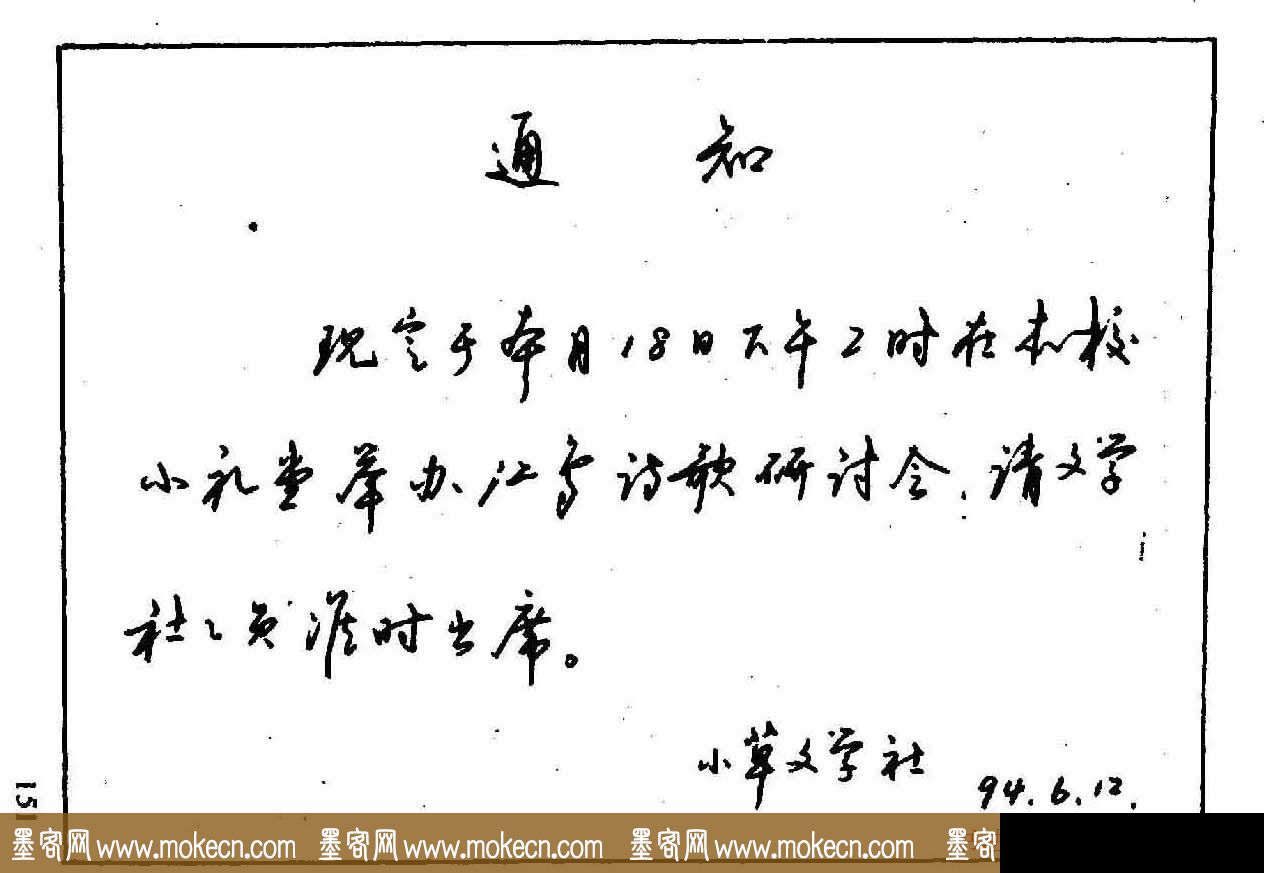 通 知
现定于本月18日下午2时在本校
小礼堂举办江诗歌研讨会，请文学
社〻员准时出席。
小草文学社
94.6.12.
151
墨客网 www.mokecn.com 墨客网 www.mokecn.com 墨客